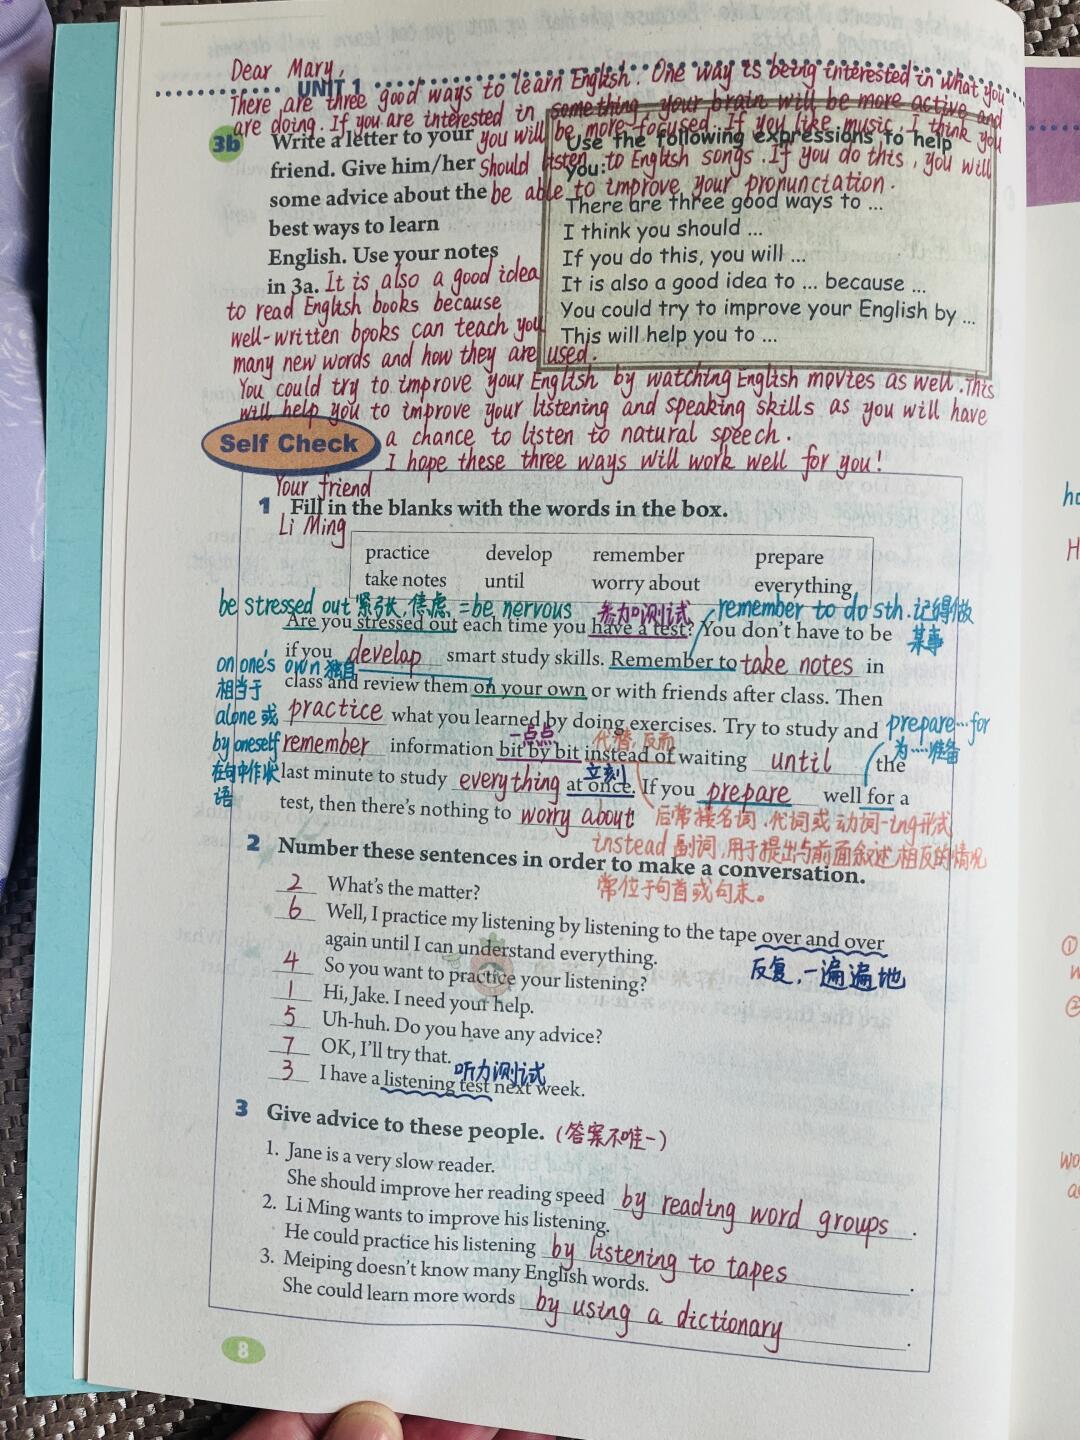 Dear Mary,
UNIT 1
There are three good ways to learn English. One way is being interested in what you
are doing. If you are interested in something your brain will be more active and
you will be more focused. If you like music, I think you
should listen to English songs. If you do this, you will
be able to improve your pronunciation.
3b Write a letter to your
friend. Give him/her
some advice about the
best ways to learn
English. Use your notes
in 3a.
Use the following expressions to help
you:
There are three good ways to ...
I think you should ...
If you do this, you will ...
It is also a good idea to ... because ...
You could try to improve your English by ...
This will help you to ...
It is also a good idea
to read English books because
well-written books can teach you
many new words and how they are used.
You could try to improve your English by watching English movies as well. This
will help you to improve your listening and speaking skills as you will have
a chance to listen to natural speech.
I hope these three ways will work well for you!
Your friend
Li Ming
Self Check
1 Fill in the blanks with the words in the box.
practice develop remember prepare
take notes until worry about everything
be stressed out 紧张,焦虑 =be nervous 参加测试 remember to do sth.记得做
某事
Are you stressed out each time you have a test? You don't have to be
if you develop smart study skills. Remember to take notes in
on one's own 独自
相当于
alone 或
by oneself
在句中作状
语
class and review them on your own or with friends after class. Then
practice what you learned by doing exercises. Try to study and
prepare…for
为……准备
一点点 代替,反而
remember information bit by bit instead of waiting until the
立刻
last minute to study everything at once. If you prepare well for a
test, then there's nothing to worry about!
后常接名词、代词或动词-ing形式
instead 副词,用于提出与前面叙述相反的情况
常位于句首或句末。
2 Number these sentences in order to make a conversation.
2 What's the matter?
6 Well, I practice my listening by listening to the tape over and over
again until I can understand everything.
反复,一遍遍地
4 So you want to practice your listening?
1 Hi, Jake. I need your help.
5 Uh-huh. Do you have any advice?
7 OK, I'll try that.
听力测试
3 I have a listening test next week.
3 Give advice to these people. (答案不唯一)
1. Jane is a very slow reader.
She should improve her reading speed by reading word groups.
2. Li Ming wants to improve his listening.
He could practice his listening by listening to tapes.
3. Meiping doesn't know many English words.
She could learn more words by using a dictionary.
8